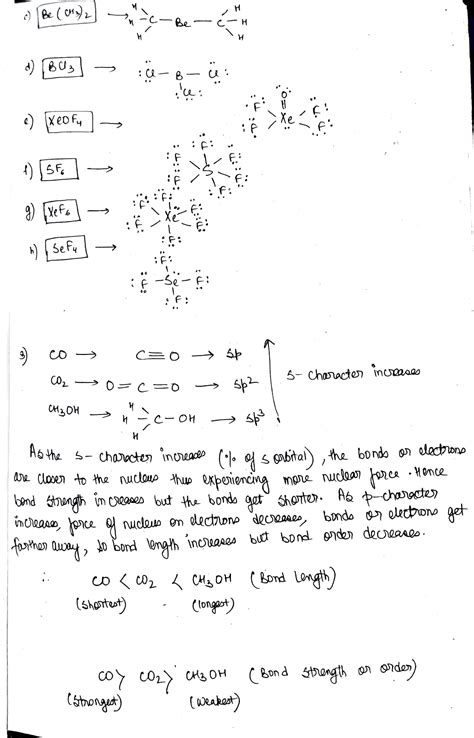 c) Be(CH3)2 → H H H C — Be — C H H H
d) BCl3 → :Cl — B — Cl: :Cl:
e) XeOF4 → :O: F F Xe F F
f) SF6 → F F F S F F F
g) XeF6 → F F F Xe F F F
h) SeF4 → :F: F — Se — F: F:
3) CO → C≡O → sp
CO2 → O=C=O → sp2
s- character increases
CH3OH → H H H C — OH → sp3
As the s- character increases (% of s orbital), the bonds or electrons
are closer to the nucleus thus experiencing more nuclear force. Hence
bond strength increases but the bonds get shorter. As p-character
increases, force of nucleus on electrons decreases, bonds or electrons get
farther away, so bond length increases but bond order decreases.
∴ CO < CO2 < CH3OH (Bond Length)
(shortest) (longest)
CO > CO2 > CH3OH (Bond Strength or order)
(strongest) (weakest)